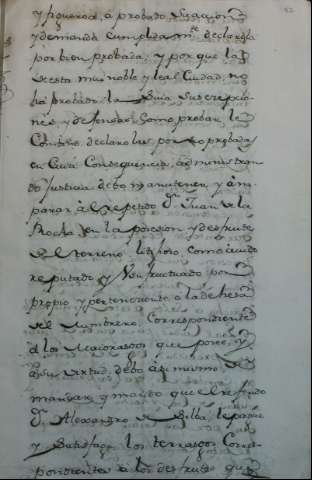 y figueroa, à probado Su accion
y demanda cumplidamte. declarola
por bien probada; y por que la
de esta mui noble y leal Ciudad, no
ha probado la Suia Sus excepcio-
nes, y defensas como probar le
Combino, declarolas por no probadas
en Cuia Consequencia, administran-
do Justicia debo mantener, y àm-
parar à el referido Dn. Juan de la
Rocha en la posesion y desfrute
de el terreno litijioso, como siendo
reputado, y Usufructuado por
propio, y perteneciente a la dehesa
del Sumbrero, Correspondiente
à los Maiorasgos que posee, y
en su virtud, debo àsi mismo de
mandar, y mando que el referido
Dn. Alexandro de Silba, le pague
y Satisfaga los terrasgos Corres-
pondientes à los desfrutes que